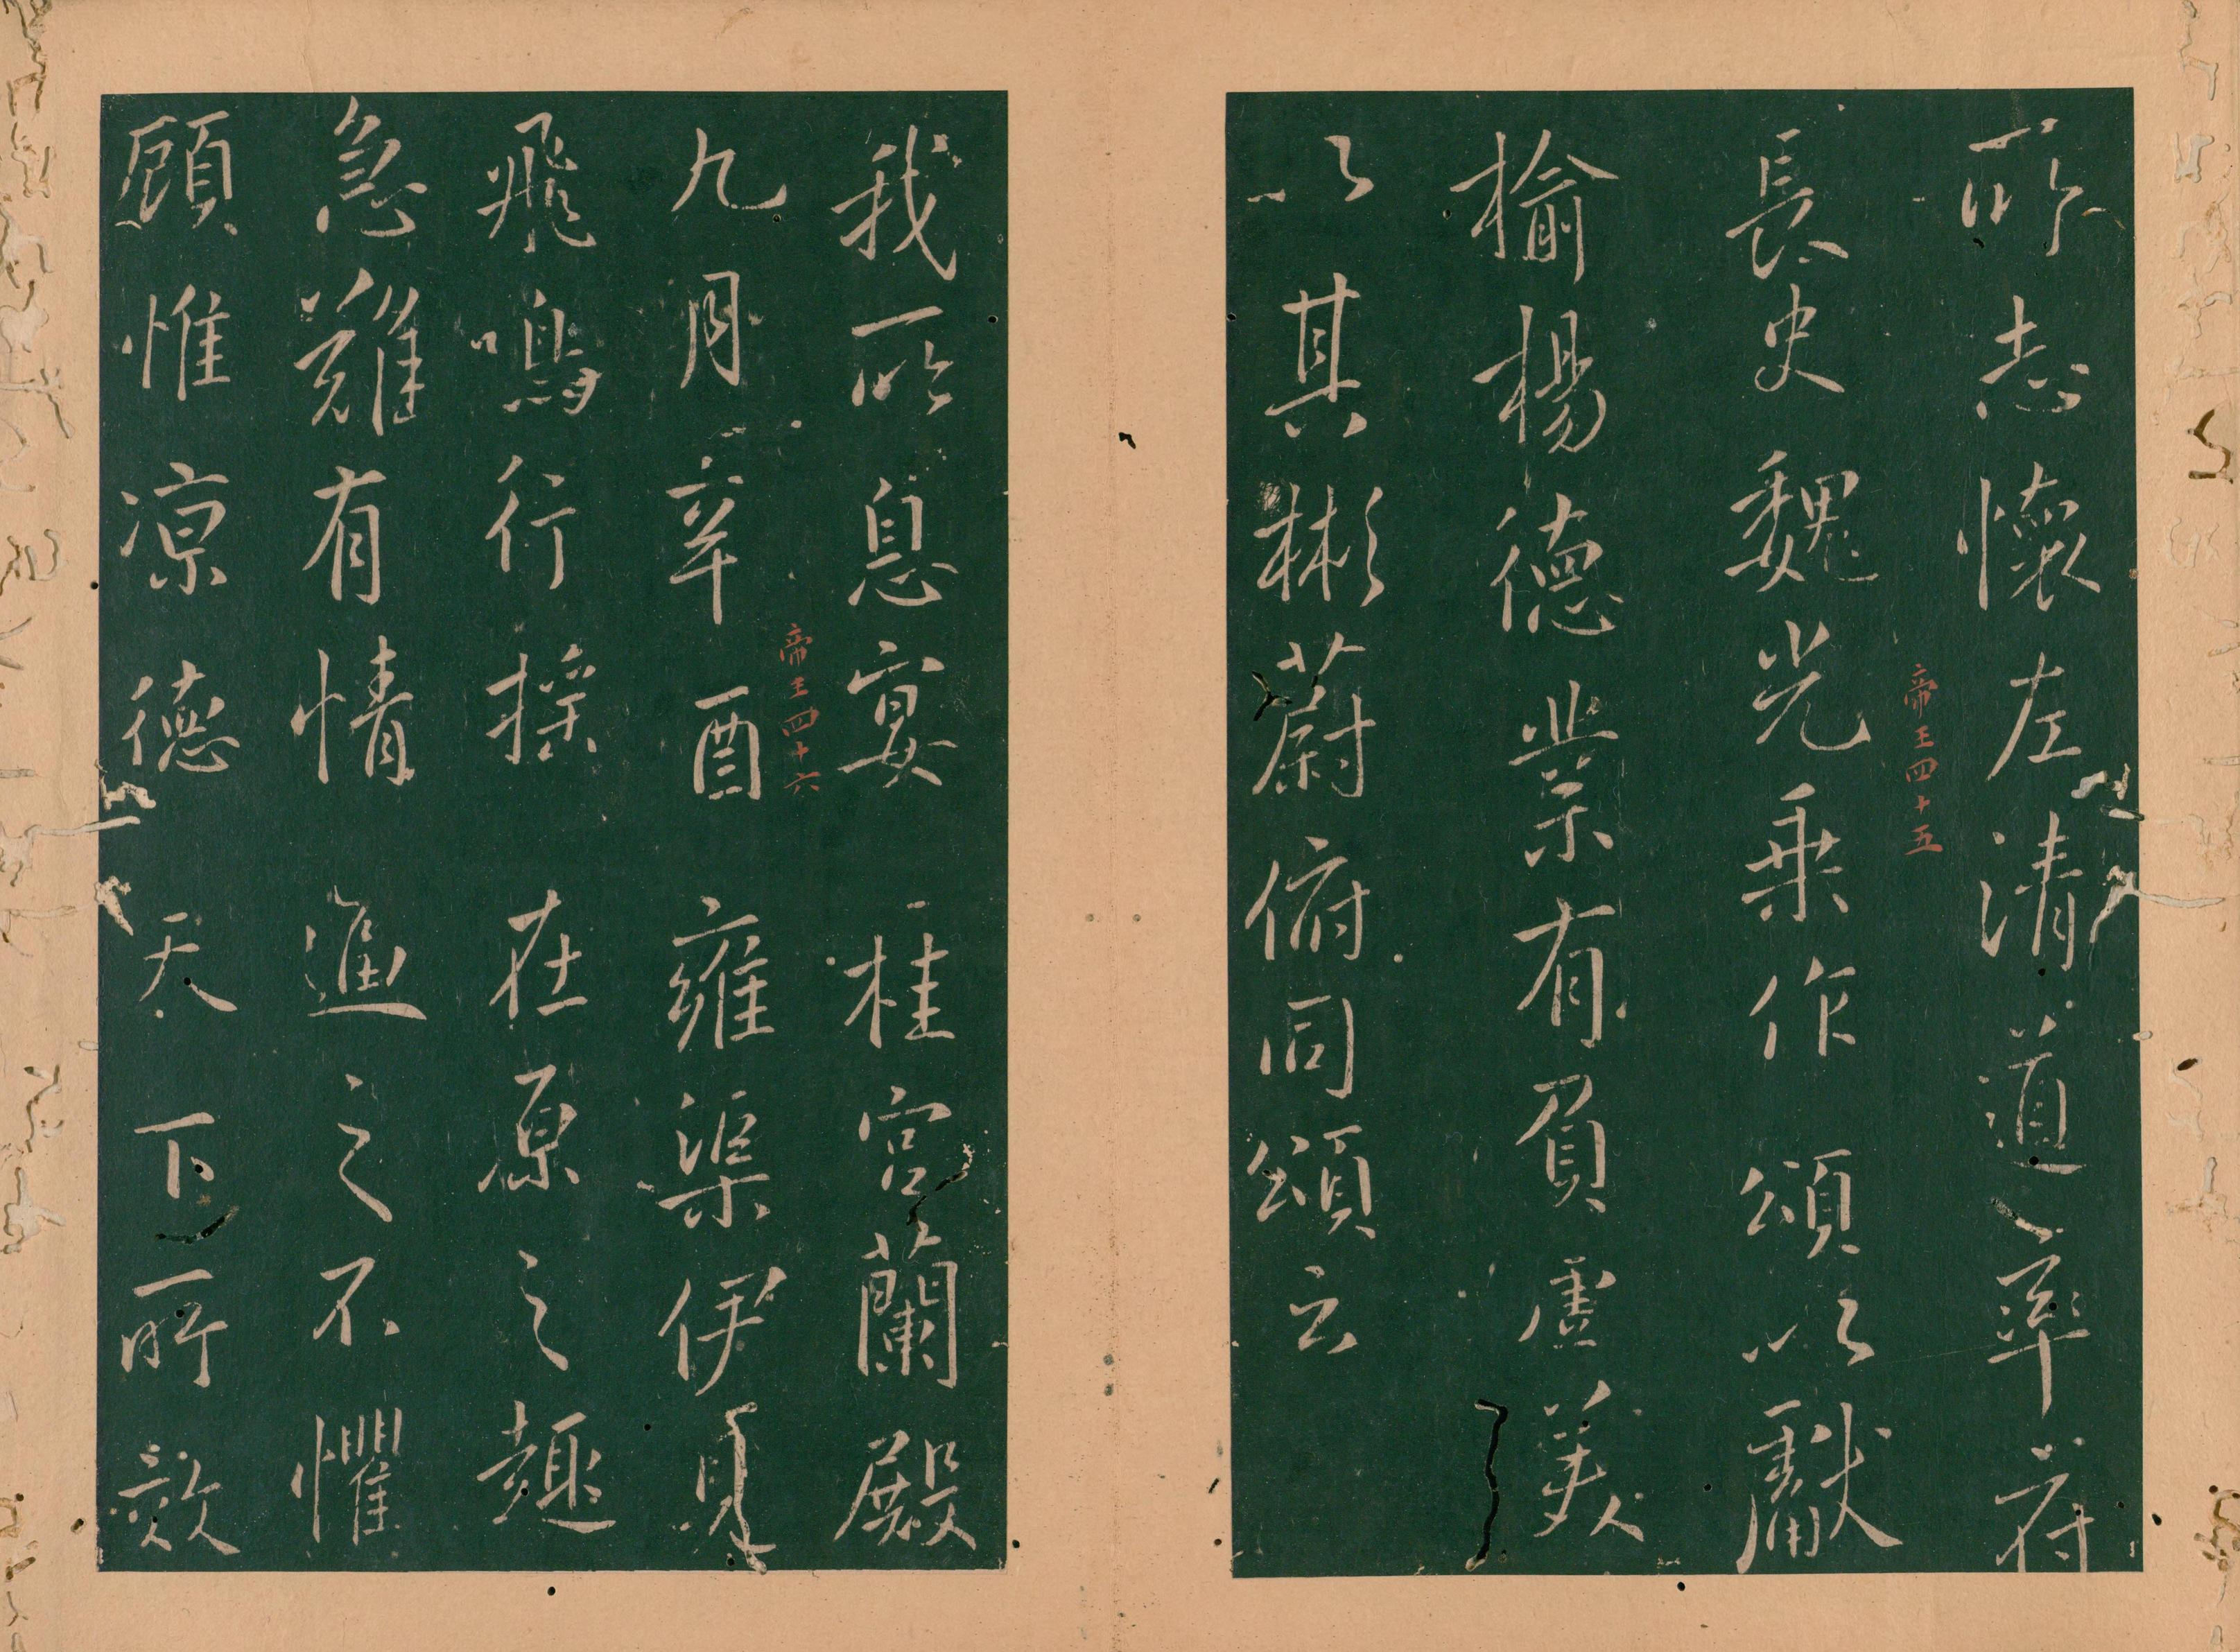 所志懷左清道率府
帝王四十五
長史魏光乘作頌以獻
榆楊德業有負虛美
以其彬蔚俯同頌云
我所息宴桂宮蘭殿
帝王四十六
九月辛酉雍渠伊見
飛鳴行搖在原之趣
急難有情逼之不懼
顧惟凉德天下所效